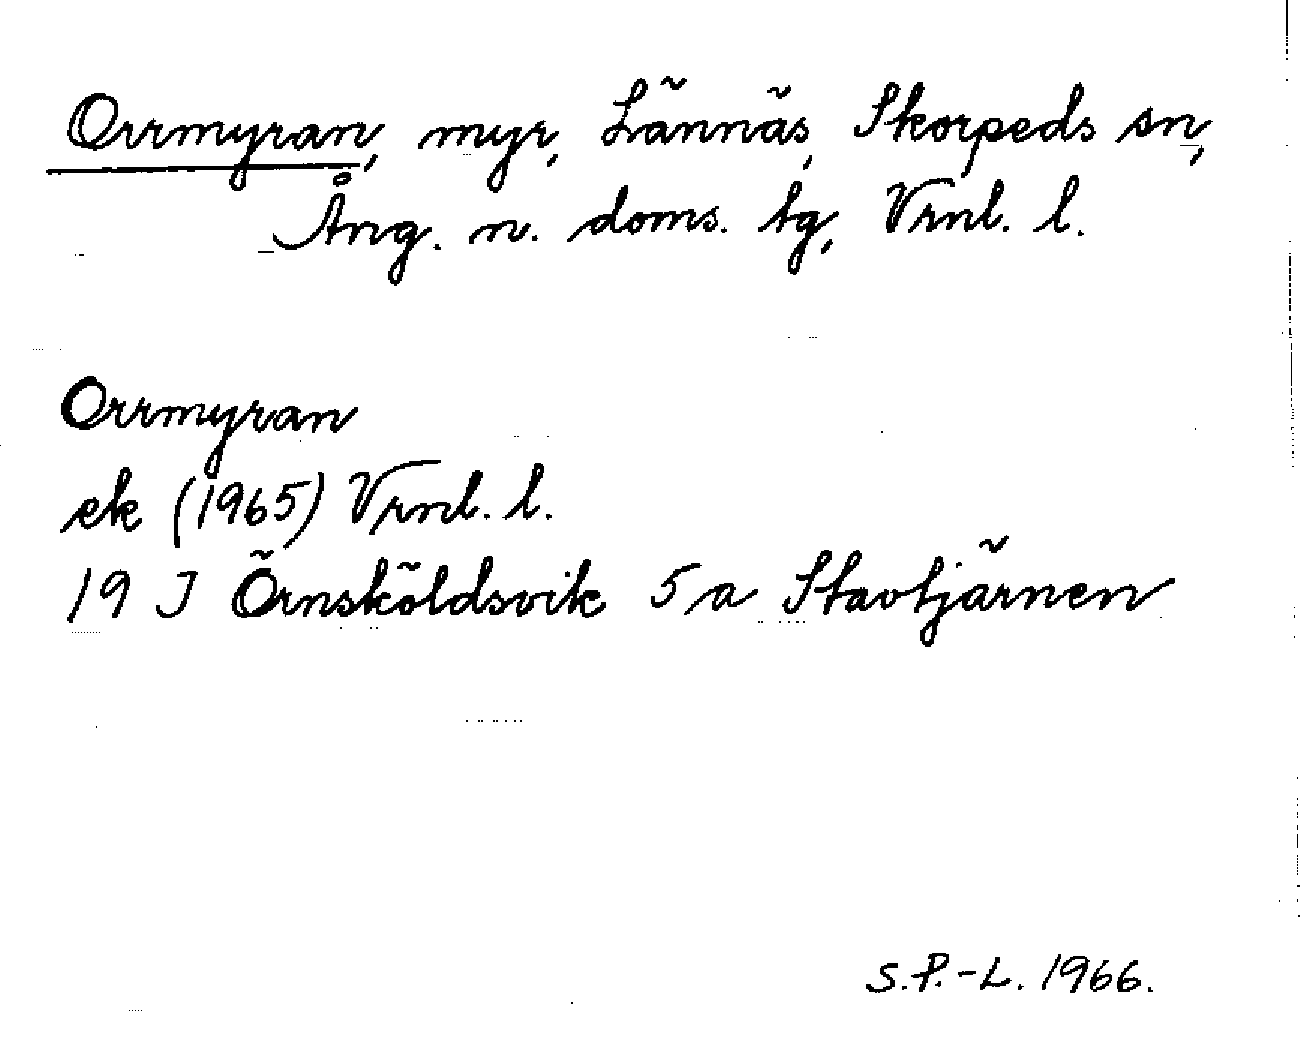 Orrmyran, myr, Lännäs, Skorpeds sn,
Ång. n. doms. tg, Vrnl. l.
Orrmyran
ek (1965) Vrnl. l.
19 J Örnsköldsvik 5 a Stavtjärnen
S.P.-L. 1966.